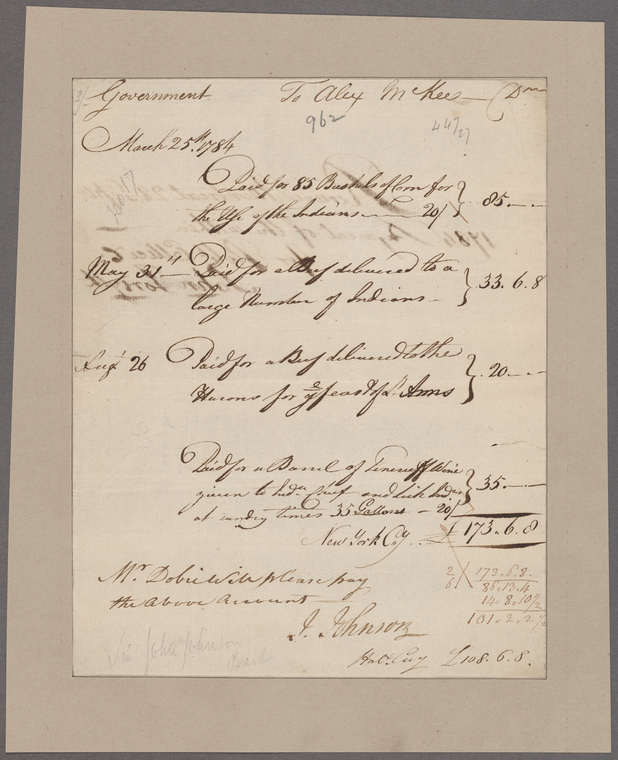 Government To Alex McKee — Drr
962
44/27
March 25th 1784
Paid for 85 Bushels of Corn for
the Use of the Indians — 20/ } 85.—.—
May 31st — Paid for a Beef delivered to a
large Number of Indians — } 33.6.8
Augt 26 Paid for a Beef delivered to the
Hurons for ye feast of St Anns } 20.—.—
Paid for a Barrel of Teneriff Wine
given to Indn Chief and Sick Indns } 35.—.—
at sundry times 35 Gallons — 20/
New York Cy .. £ 173.6.8
Mr Dobie Will please pay
the Above Account
2/6 173.6.8.
86.13.4
14.8.10 1/2
101.2.2 1/2
J. Johnson
Sir John Johnson
Bart
Hals. Cuy £108.6.8.